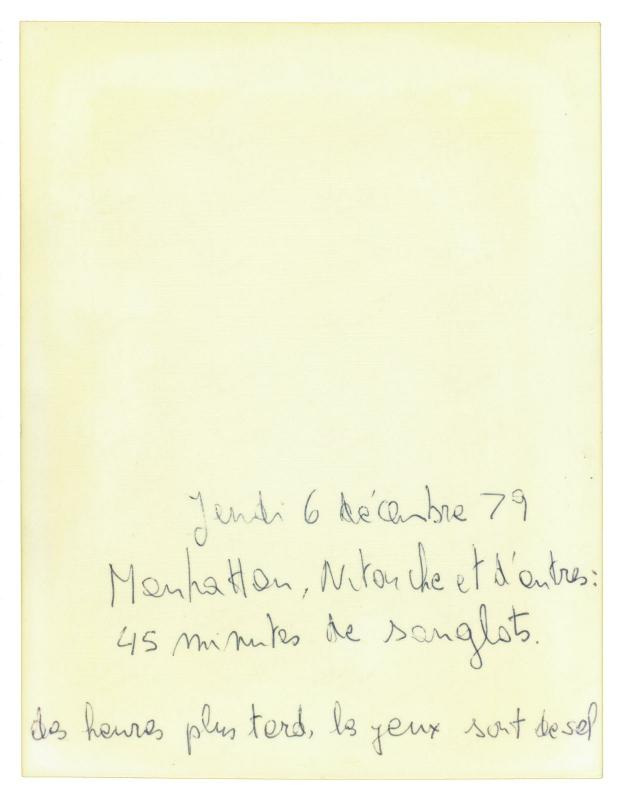 Jeudi 6 décembre 79
Manhattan, Nitouche et d'autres:
45 minutes de sanglots.
des heures plus tard, les yeux sont de sel